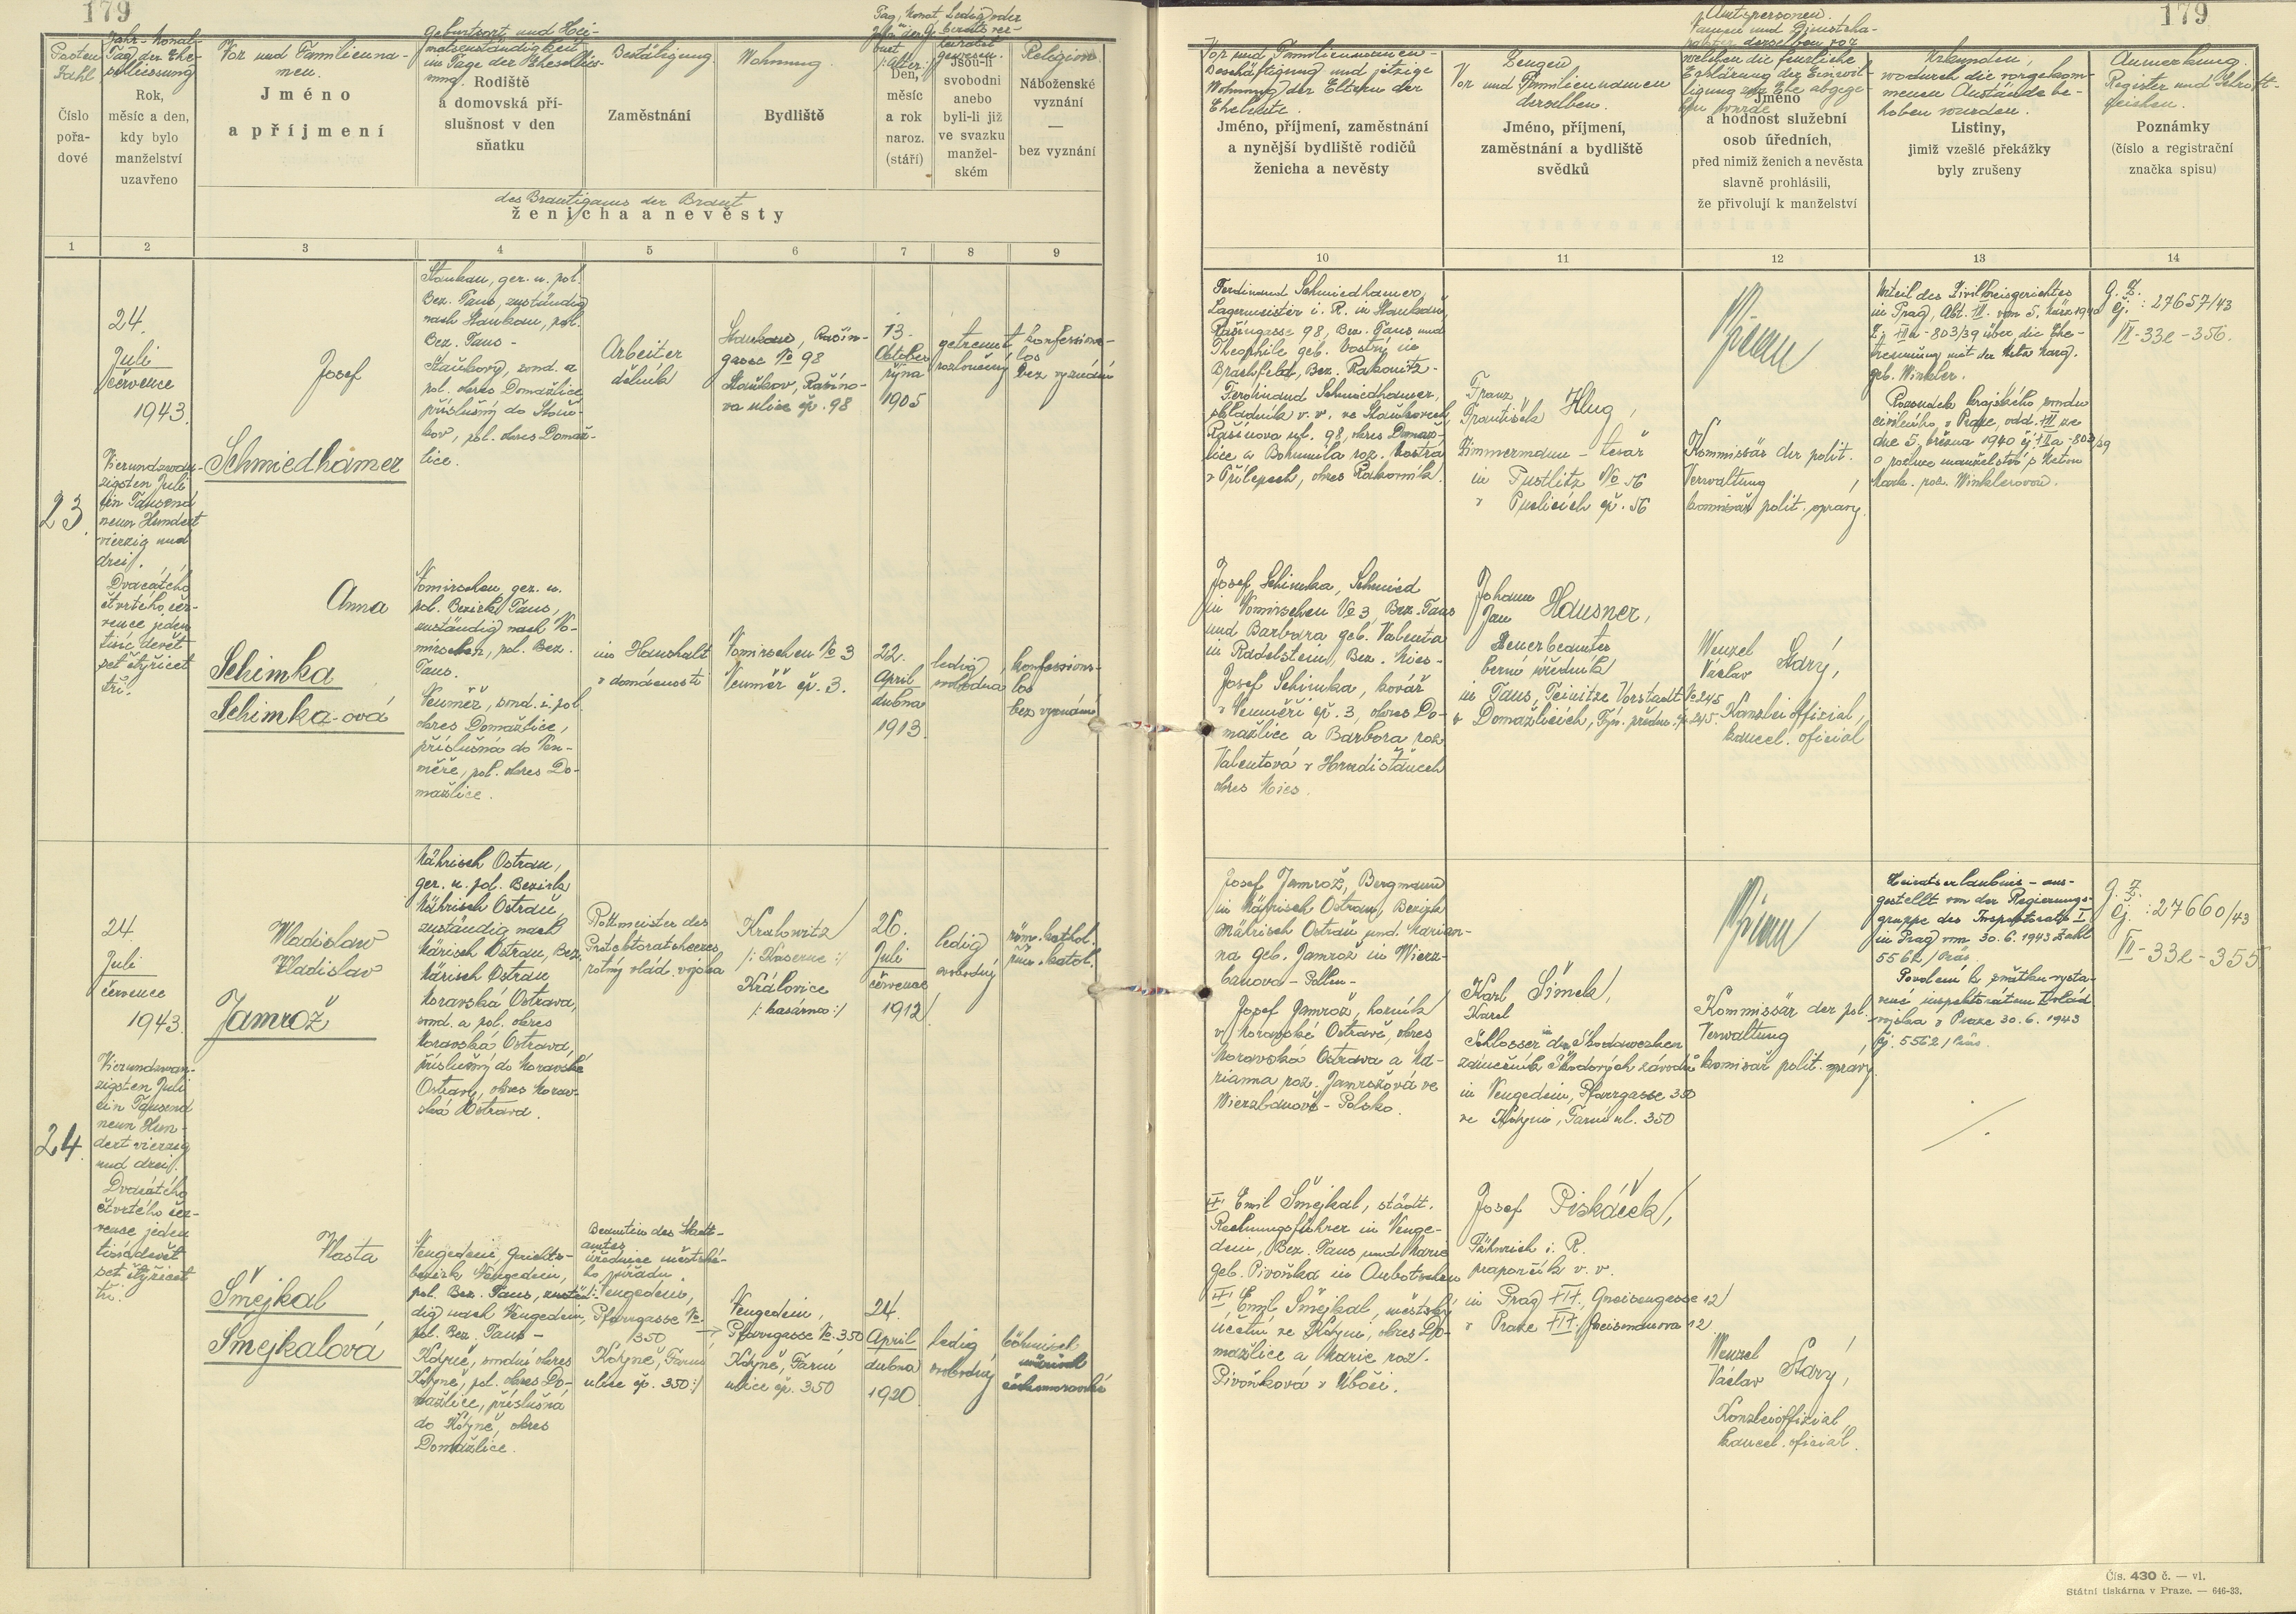 179
Posten
Zahl
Číslo
pořa-
dové
Jahr-Monat
Tag der Ehe-
schliessung
Rok,
měsíc a den,
kdy bylo
manželství
uzavřeno
Vor und Familienna-
men.
Jméno
a příjmení
Geburtsort und Hei-
matszuständigkeit
im Tage der Eheschlies-
sung.
Rodiště
a domovská pří-
slušnost v den
sňatku
Bestätigung.
Zaměstnání
Wohnung.
Bydliště
Den,
měsíc
a rok
naroz.
(stáří)
Jsou-li
svobodni
anebo
byli-li již
ve svazku
manžel-
ském
Religion.
Náboženské
vyznání
—
bez vyznání
des Bräutigams der Braut
ženicha a nevěsty
1 2 3 4 5 6 7 8 9
23.
24.
Juli
července
1943.
Vierundzwan-
zigsten Juli
ein Tausend
neun Hundert
vierzig und
drei.
Dvacátého
čtvrtého čer-
vence jeden
tisíc devět
set čtyřicet
tři.
Josef
Schmiedhamer
Staukau, ger. u. pol.
Bez. Taus, zuständig
nach Staukau, pol.
Bez. Taus -
Staňkov, soud. a
pol. okres Domažlice,
příslušný do Staň-
kov, pol. okres Domaž-
lice.
Arbeiter
dělník
Staukau, Rašín-
gasse № 98
Staňkov, Rašíno-
va ulice čp. 98
13.
Oktober
října
1905
getrennt
rozloučený
konfessions-
los
bez vyznání
Anna
Schimka
Schimka-ová
Womirschen, ger. u.
pol. Bezirk Taus,
zuständig nach Wo-
mirschen, pol. Bez.
Taus.
Neuměř, soud. i. pol.
okres Domažlice,
příslušná do Neu-
měře, pol. okres Do-
mažlice.
im Haushalt
v domácnosti
Womirschen № 3
Neuměř čp. 3.
22.
April
dubna
1913.
ledig
svobodná
konfessions-
los
bez vyznání
24.
24.
Juli
července
1943.
Vierundzwan-
zigsten Juli
ein Tausend
neun Hun-
dert vierzig
und drei.
Dvacátého
čtvrtého čer-
vence jeden
tisíc devět
set čtyřicet
tři.
Wladislaw
Vladislav
Jamrož
Mährisch Ostrau,
ger. u. pol. Bezirk
Mährisch Ostrau,
zuständig nach
Märisch Ostrau, Bez.
Märisch Ostrau
Moravská Ostrava,
soud. a pol. okres
Moravská Ostrava,
příslušný do Moravské
Ostravy, okres Morav-
ská Ostrava.
Rottmeister des
Protektoratsheeres
rotný vlád. vojska
Kralowitz
/: Kaserne :/
Královice
/: kasárna :/
26.
Juli
července
1912
ledig
svobodný
röm. kathol.
řím. katol.
Vlasta
Šmejkal
Šmejkalová
Neugedein, Gerichts-
bezirk Neugedein,
pol. Bez. Taus, zustän-
dig nach Neugedein,
pol. Bez. Taus -
Kdyně, soudní okres
Kdyně, pol. okres Do-
mažlice, příslušná
do Kdyně, okres
Domažlice.
Beamtin des Stadt-
amtes
úřednice městské-
ho úřadu
/: Neugedein,
Pfarrgasse №
350
Kdyně, Farní
ulice čp. 350 :/
Neugedein,
Pfarrgasse №. 350
Kdyně, Farní
ulice čp. 350
24.
April
dubna
1920
ledig
svobodný
böhmisch
mährisch
českomoravské
179
Vor und Familiennamen -
Beschäftigung und jetzige
Wohnung der Eltern der
Eheleute.
Jméno, příjmení, zaměstnání
a nynější bydliště rodičů
ženicha a nevěsty
Zeugen
Vor und Familiennamen
derselben.
Jméno, příjmení,
zaměstnání a bydliště
svědků
Amtspersonen.
Namen und Dienstcha-
rakter derselben vor
welchen die feierliche
Erklärung der Einwil-
ligung zur Ehe abgege-
ben wurde
Jméno
a hodnost služební
osob úředních,
před nimiž ženich a nevěsta
slavně prohlásili,
že přivolují k manželství
Urkunden,
wodurch die vorgekom-
menen Anstände be-
hoben wurden.
Listiny,
jimiž vzešlé překážky
byly zrušeny
Anmerkung.
Register und Schrift-
zeichen.
Poznámky
(číslo a registrační
značka spisu)
10 11 12 13 14
Ferdinand Schmiedhamer,
Lagermeister i. R. in Staukau,
Rašíngasse 98, Bez. Taus und
Theophile geb. Vostrý in
Brantfeld, Bez. Rakonitz -
Ferdinand Schmiedhamer,
skladník v. v. ve Staňkovech,
Rašínova ul. 98, okres Domaž-
lice a Bohumila roz. Vostrá
v Přílepech, okres Rakovník.
Franz
František Klug,
Zimmermann - tesař
in Pustlitz № 56
v Puclicích čp. 56
Kommissär der polit.
Verwaltung,
komisař polit. správy.
Urteil des Zivilkreisgerichtes
in Prag, Abt. VII. vom 5. März 1940
über die Ehe-
trennung mit der
geb. Winkler.
Rozsudek krajského soudu
civilního v Praze, odd. VII ze
dne 5. března 1940
o rozluce manželství s
roz. Winklerovou.
G. Z.
čj. : 27657/43
VII-33e-356.
Josef Schimka, Schmied
in Womirschen № 3, Bez. Taus
und Barbara geb. Valenta
in Radelstein, Bez. Mies -
Josef Schimka, kovář
v Neuměři čp. 3, okres Do-
mažlice a Barbora roz.
Valentová v Hradišťanech
okres Mies.
Johann
Jan Hausner,
Steuerbeamter
berní úředník
in Taus, Teinitzer Vorstadt № 245
v Domažlicích, Týn. předm. čp. 245.
Wenzel
Václav Starý,
Kanzleioffizial,
kancel. oficiál
Josef Jamrož, Bergmann
in Mährisch Ostrau, Bezirk
Mährisch Ostrau und Marian-
na geb. Jamrož in Wierz-
banova - Pollen -
Josef Jamrož, horník
v Moravské Ostravě, okres
Moravská Ostrava a Ma-
rianna roz. Jamrožová ve
Wierzbanově - Polsko.
Karl Šimek,
Karel
Schlosser in den Škodawerken
zámečník Škodových závodů
in Neugedein, Pfarrgasse 350
ve Kdyni, Farní ul. 350
Kommissär der pol.
Verwaltung,
komisař polit. správy.
Heiratserlaubnis - aus-
gestellt von der Regierungs-
gruppe des Inspektorats I
in Prag vom 30.6.1943 Zahl
5562/Präs.
Povolení k sňatku vysta-
vené inspektorátem I vlád.
vojska v Praze 30.6.1943
čj. 5562/Präs.
G. Z.
čj. : 27660/43
VII-33e-355
Emil Šmejkal, städt.
Rechnungsführer in Neuge-
dein, Bez. Taus und Marie
geb. Pivoňka in Aubotschen
Emil Šmejkal, městský
účetní ve Kdyni, okres Do-
mažlice a Marie roz.
Pivoňková v Úboči.
Josef Piskáček,
Fähnrich i. R.
praporčík v. v.
in Prag XIX., Gneisenaugasse 12
v Praze XIX. Gneisenauova 12
Wenzel
Václav Starý,
Kanzleioffizial,
kancel. oficiál.
Čís. 430 č. — vl.
Státní tiskárna v Praze. — 646-33.